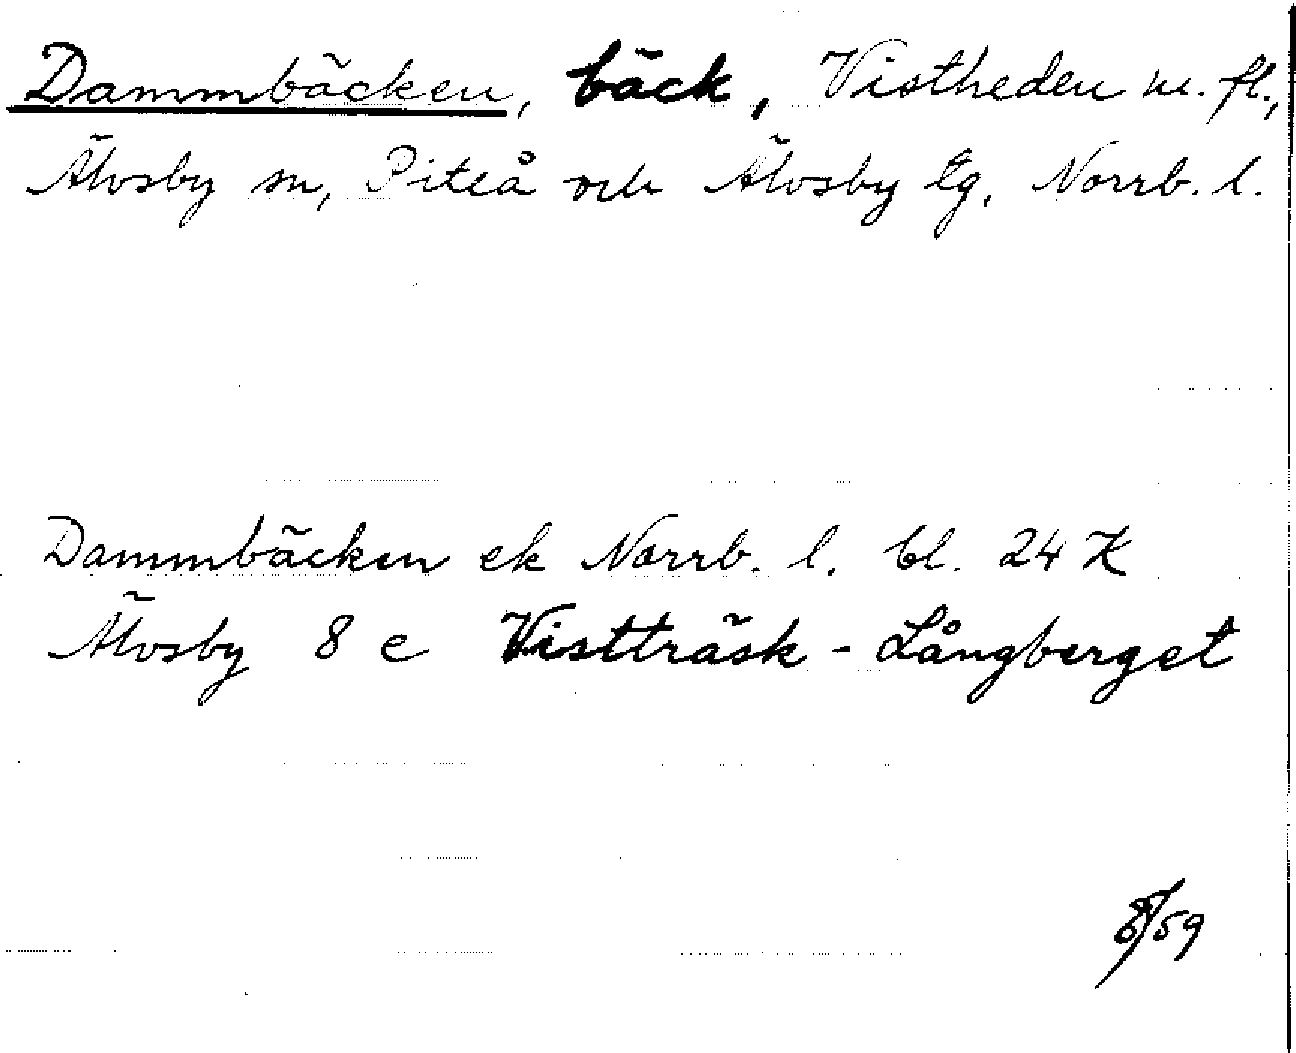 Dammbäcken, bäck, Vistheden m. fl.,
Älvsby sn, Piteå och Älvsby tg, Norrb. l.
Dammbäcken ek Norrb. l. bl. 24 K
Älvsby 8 c Vistträsk - Långberget
8/59